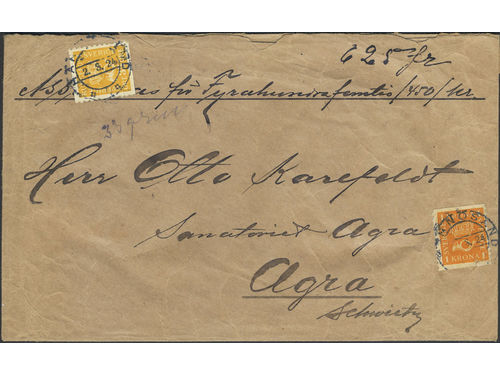 SVERIGE
2.5.24
625 fr
för Fyrahundrafemtio /450/ kr.
33 gram
Herr Otto Karefeldt
Sanatoriet Agra
Agra
Schweitz
1 KRONA 1